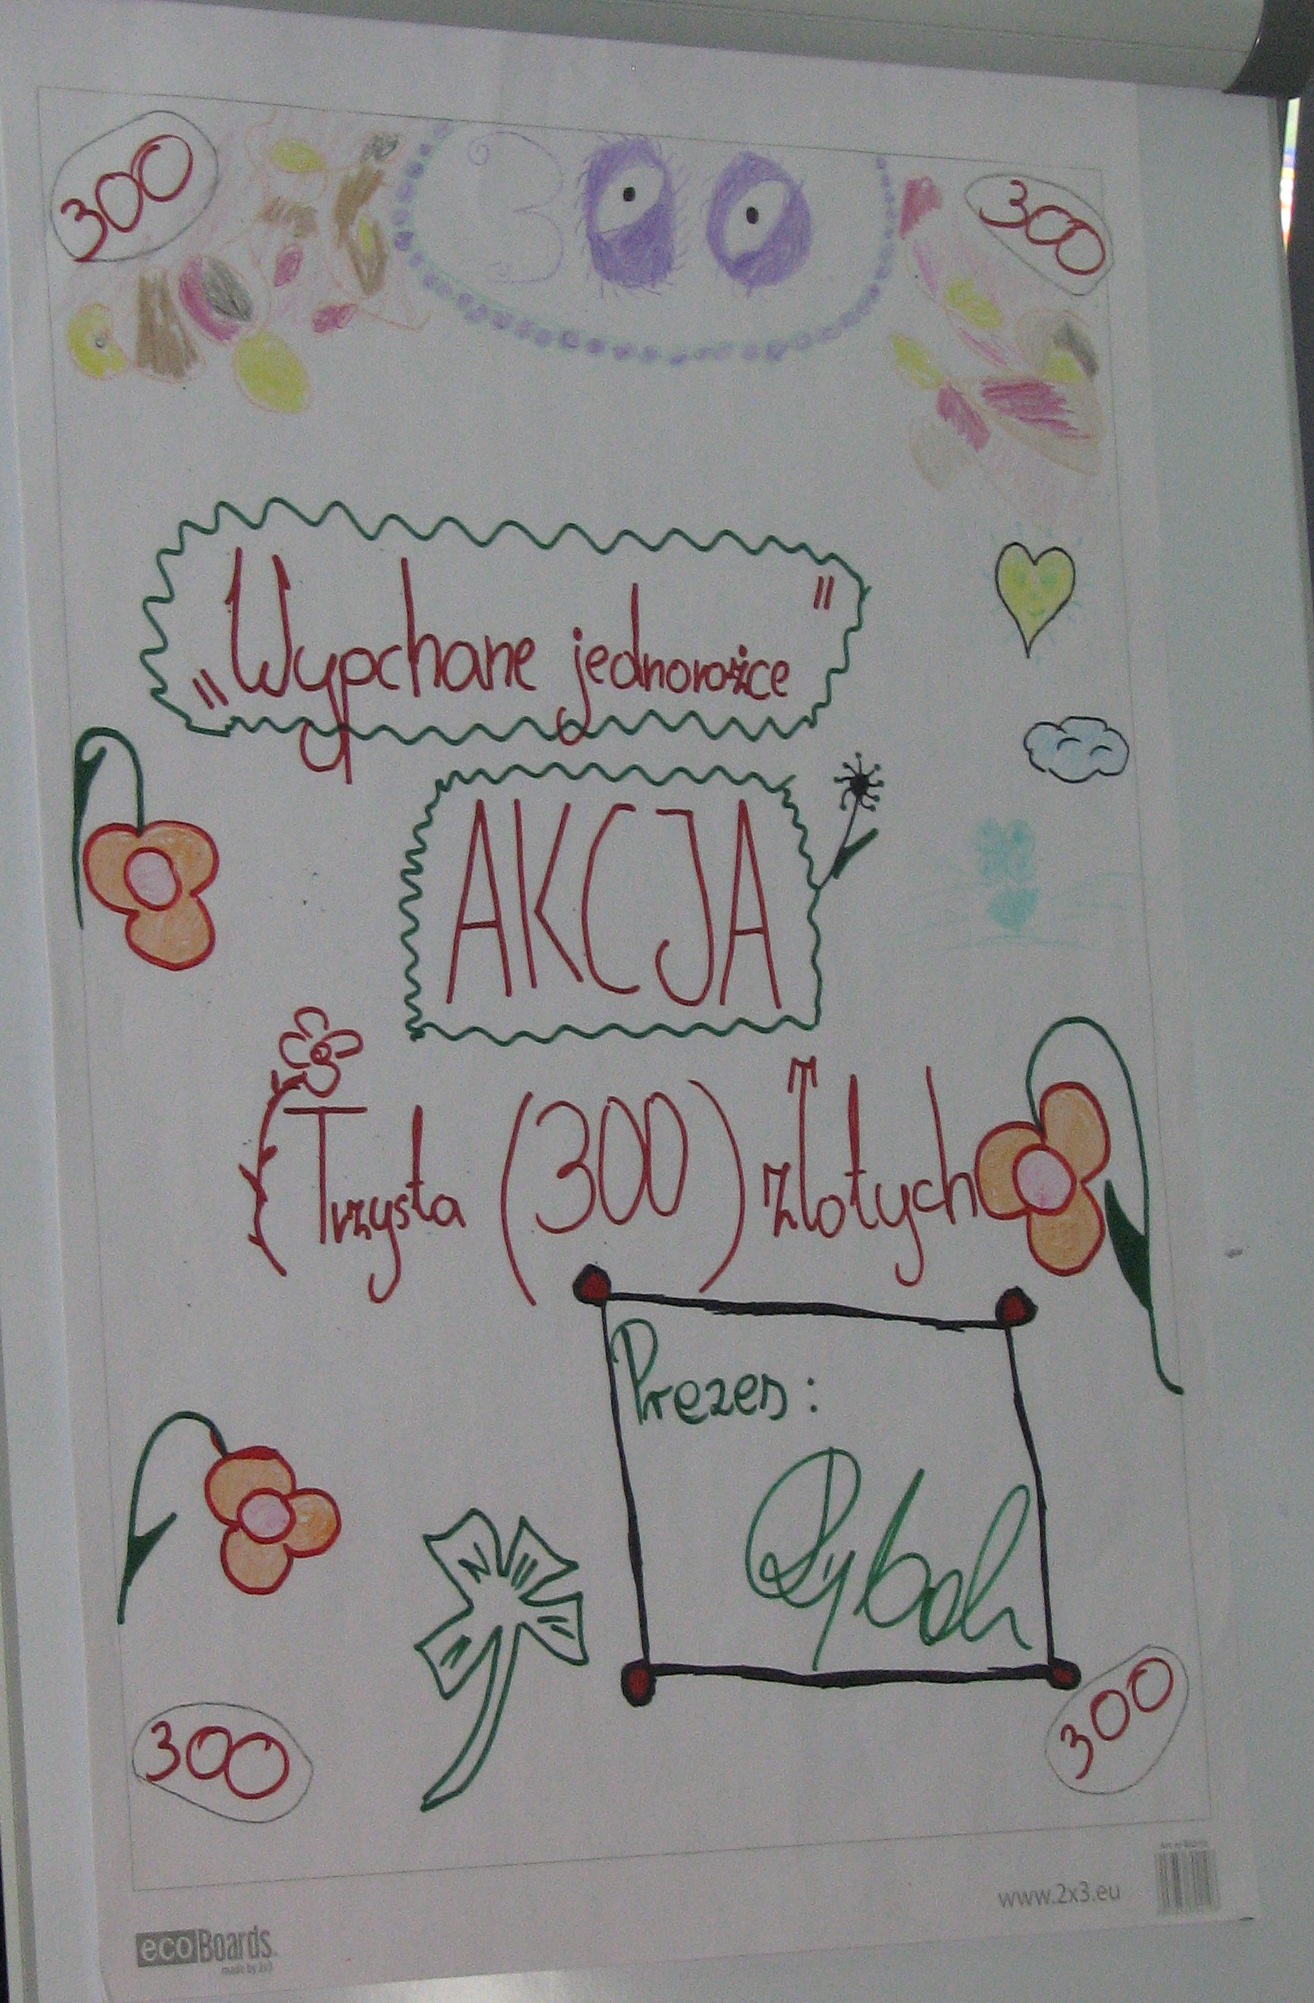 300
300
300
„Wypchane jednorożce"
AKCJA
Trzysta (300) Złotych
Prezes:
300
300
www.2x3.eu
ecoBoards
made by 2x3